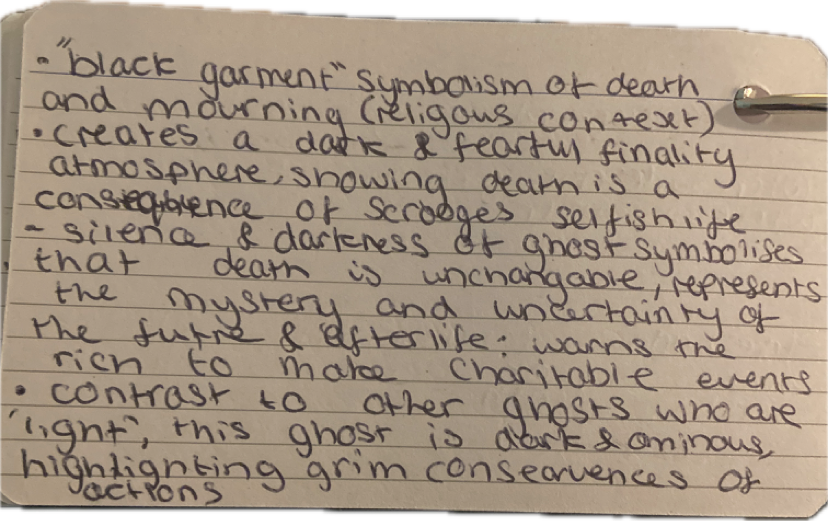 - "black garment" symbolism of death
and mourning (religous context)
• creates a dark & fearful finality
atmosphere, showing death is a
consequence of scrooges selfish life
- silence & darkness of ghost symbolises
that death is unchangable, represents
the mystery and uncertainty of
the futre & afterlife: warns the
rich to make charitable events
• contrast to other ghosts who are
"light", this ghost is dark & ominous,
highlighting grim consequences of
actions